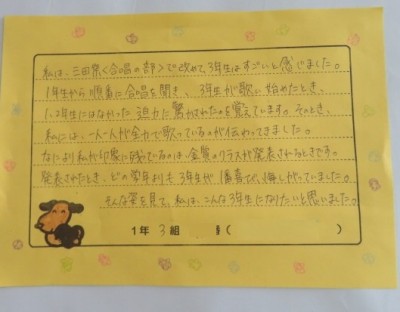 私は、三田祭<合唱の部>で改めて3年生はすごいと感じました。
1年生から順番に合唱を聞き、3年生が歌い始めたとき、
1、2年生にはなかった迫力に驚かされたのを覚えています。そのとき、
私には、一人一人が全力で歌っているのが伝わってきました。
なにより私が印象に残っているのは、金賞のクラスが発表されるときです。
発表されたとき、どの学年よりも3年生が1番喜び、悔しがっていました。
そんな姿を見て、私は、こんな3年生になりたいと思いました。
1年 3組 ( )